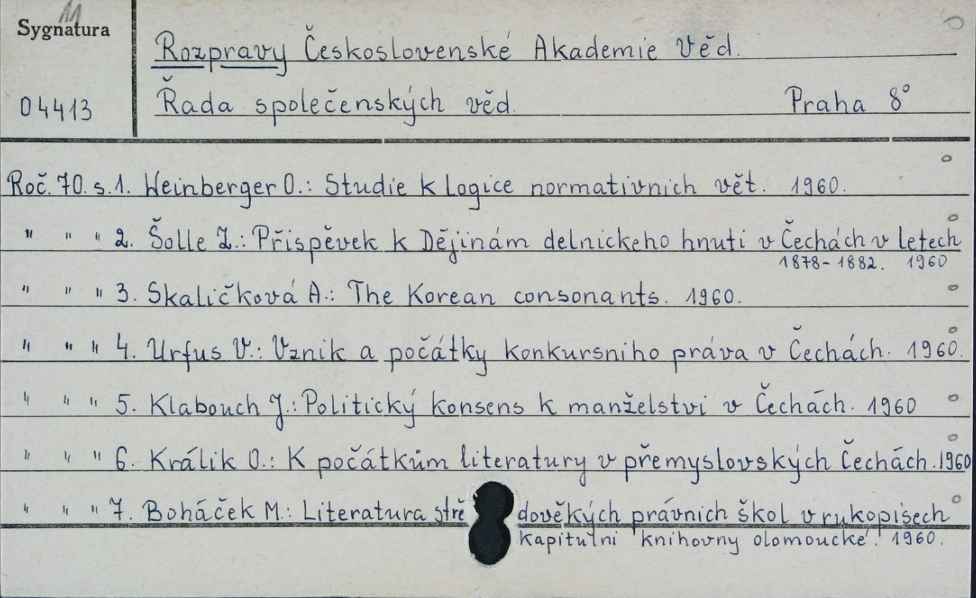 11
Sygnatura
04413
Rozpravy Československé Akademie Věd.
Řada společenských věd. Praha 8°
Roč. 70. s. 1. Weinberger O.: Studie k logice normativnich vět. 1960.
" " " 2. Šolle Z.: Přispěvek k Dějinám delnickeho hnuti v Čechách v letech
1878-1882. 1960
" " " 3. Skaličková A.: The Korean consonants. 1960.
" " " 4. Urfus V.: Vznik a počátky konkursniho práva v Čechách. 1960.
" " " 5. Klabouch J.: Politický konsens k manželstvi v Čechách. 1960
" " " 6. Králik O.: K počátkům literatury v přemyslovských Čechách. 1960
" " " 7. Boháček M.: Literatura stře dověkých právnich škol v rukopisech
kapitulni knihovny olomoucké. 1960.